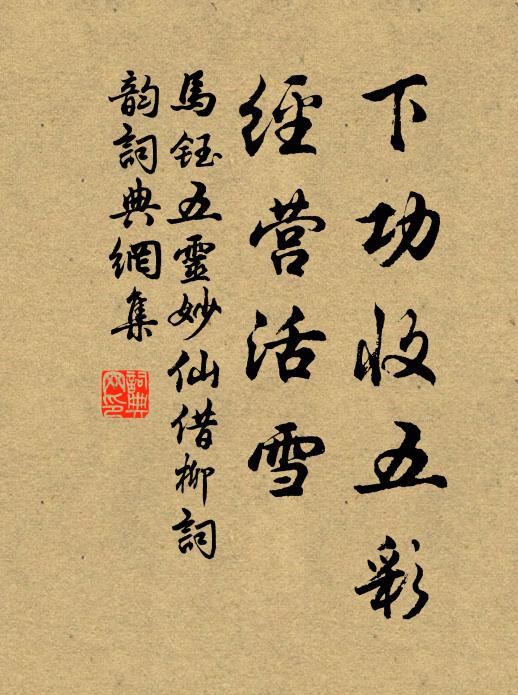 下功收五彩
經营活雪
馬鈺五靈妙仙借柳詞
韵詞典網集
詞典
网印